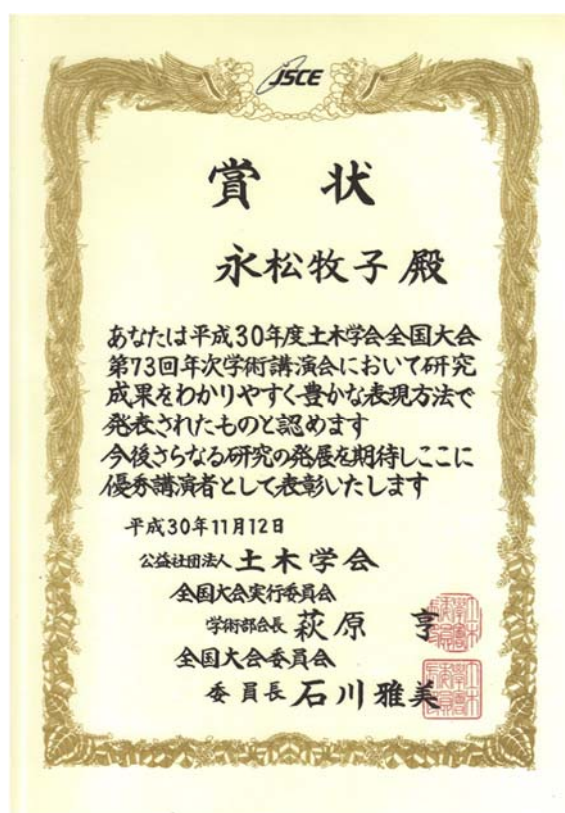 JSCE
賞 状
永松牧子 殿
あなたは平成30年度土木学会全国大会
第73回年次学術講演会において研究
成果をわかりやすく豊かな表現方法で
発表されたものと認めます
今後さらなる研究の発展を期待しここに
優秀講演者として表彰いたします
平成30年11月12日
公益社団法人 土木学会
全国大会実行委員会
学術部会長 萩原 亨
全国大会委員会
委員長 石川雅美